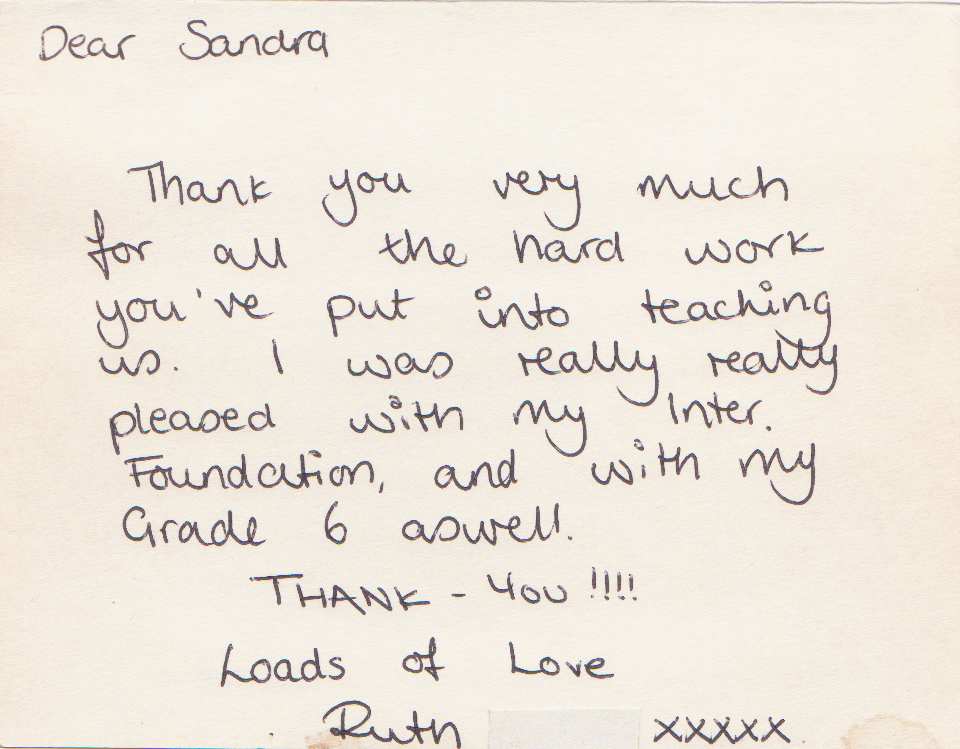 Dear Sandra
Thank you very much
for all the hard work
you've put into teaching
us. I was really really
pleased with my Inter.
Foundation, and with my
Grade 6 aswell.
THANK - YOU !!!!
Loads of Love
Ruth xxxxx